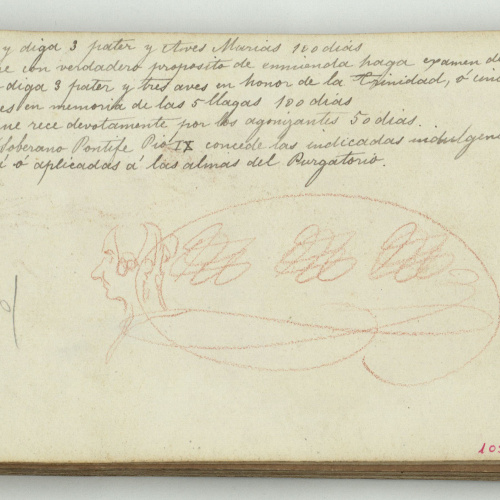 y diga 3 pater y Aves Marias 100 dias
e con verdadero proposito de enmienda haga examen de
diga 3 pater y tres aves en honor de la Trinidad, ó cinc
es en memoria de las 5 llagas 100 dias
ue rece devotamente por los agonizantes 50 dias.
Soberano Pontife Pio IX concede las indicadas indulgen
í ó aplicadas á las almas del Purgatorio.
10